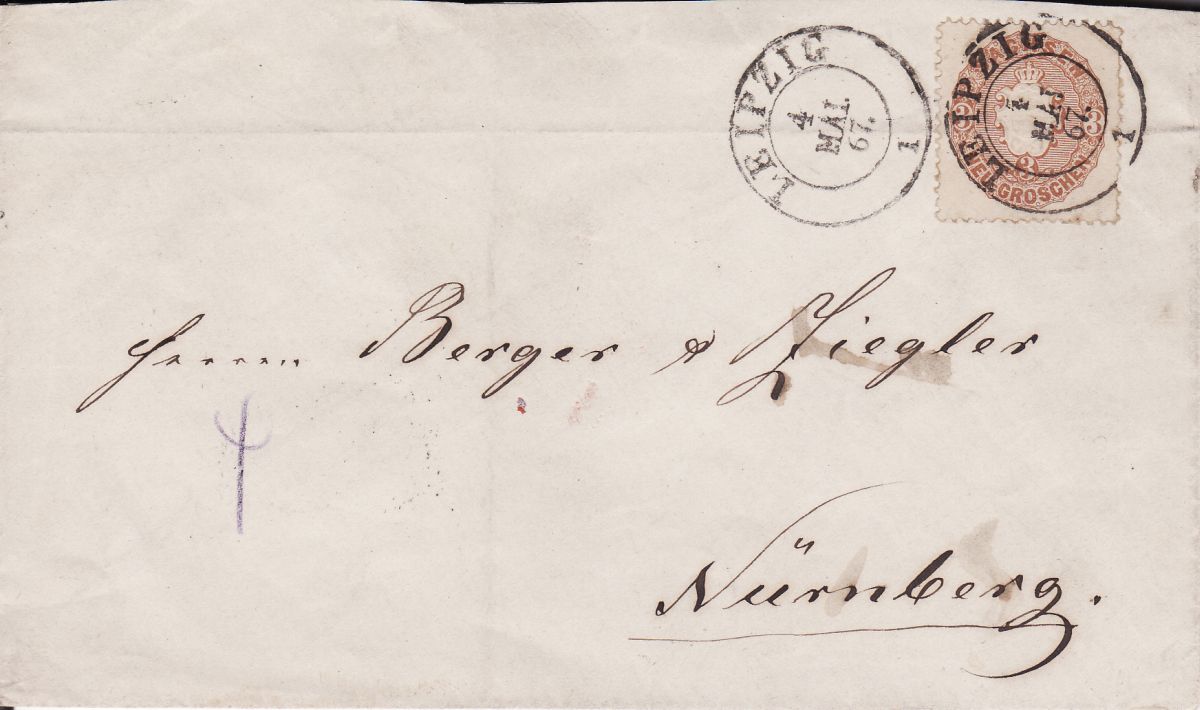 LEIPZIG
4
MAI.
67.
1
LEIPZIG
4
MAI
67.
1
3
3
3
NEUGROSCHEN
Herren Berger & Ziegler
Nürnberg.